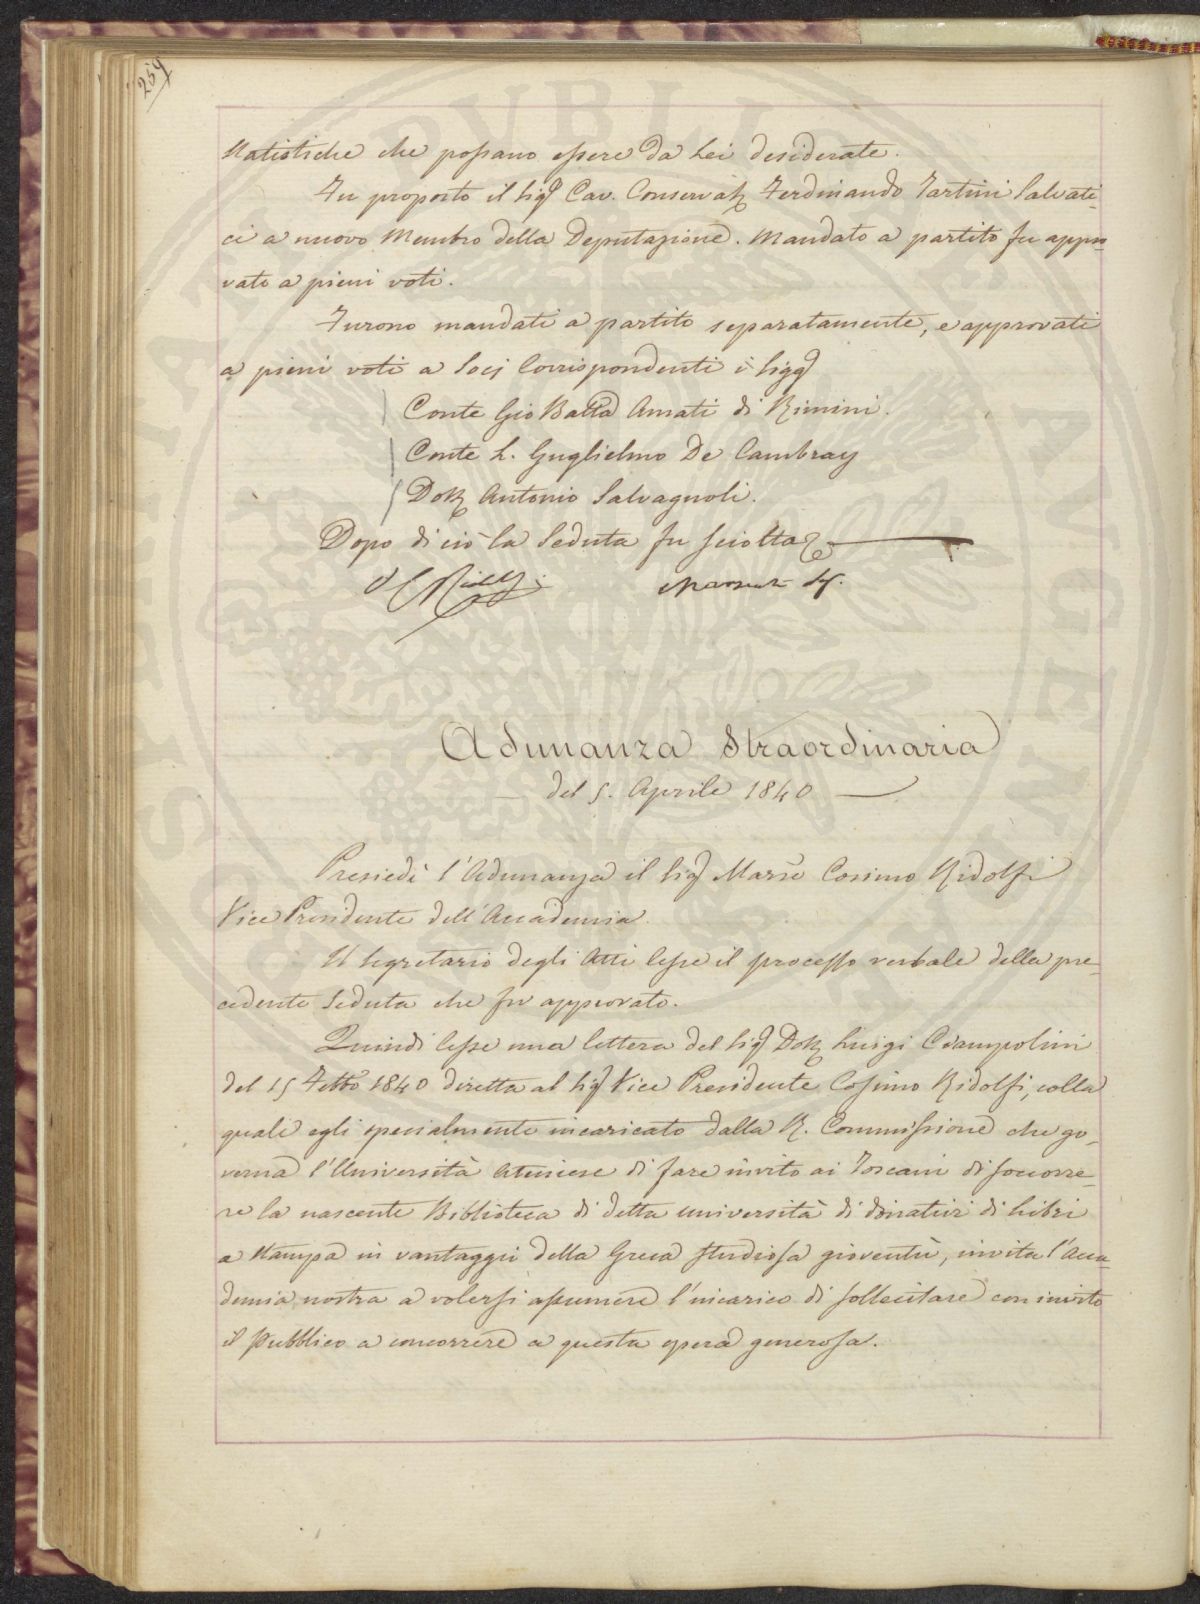 259
statistiche che possano essere da Lei desiderate.
Fu proposto il Sig.r Cav. Conservat.e Ferdinando Tartini Salvati-
ci a nuovo Membro della Deputazione. Mandato a partito fu appro-
vato a pieni voti.
Furono mandati a partito separatamente, e approvati
a pieni voti a Socj Corrispondenti i Sigg.ri
Conte Gio Batta Amati di Rimini.
Conte L. Guglielmo De Cambray
Dott. Antonio Salvagnoli.
Dopo di ciò la Seduta fu sciolta
C Ridolfi
Adunanza Straordinaria
del 5. Aprile 1840
Presiedè l'Adunanza il Sig.r March.e Cosimo Ridolfi
Vice Presidente dell'Accademia.
Il Segretario degli Atti lesse il processo verbale della pre-
cedente Seduta che fu approvato.
Quindi lesse una lettera del Sig.r Dott. Luigi Ciampolini
del 15 Febb.o 1840 diretta al Sig.r Vice Presidente Cosimo Ridolfi, colla
quale egli specialmente incaricato dalla R. Commissione che go-
verna l'Università Ateniese di fare invito ai Toscani di soccorre-
re la nascente Biblioteca di detta università di donativi di Libri
a stampa in vantaggio della Greca studiosa gioventù, invita l'Acca-
demia nostra a volersi assumere l'incarico di sollecitare con invito
il Pubblico a concorrere a questa opera generosa.
SOCIETAS PVBLICAE AVGENDAE